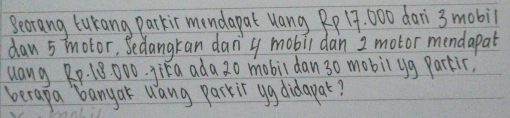 Seorang tukang parkir mendapat uang Rp 17.000 dari 3 mobil
dan 5 motor, Sedangkan dari 4 mobil dan 2 motor mendapat
uang Rp.18.000. jika ada 20 mobil dan 30 mobil yg Parkir,
berapa banyak uang parkir yg didapat?